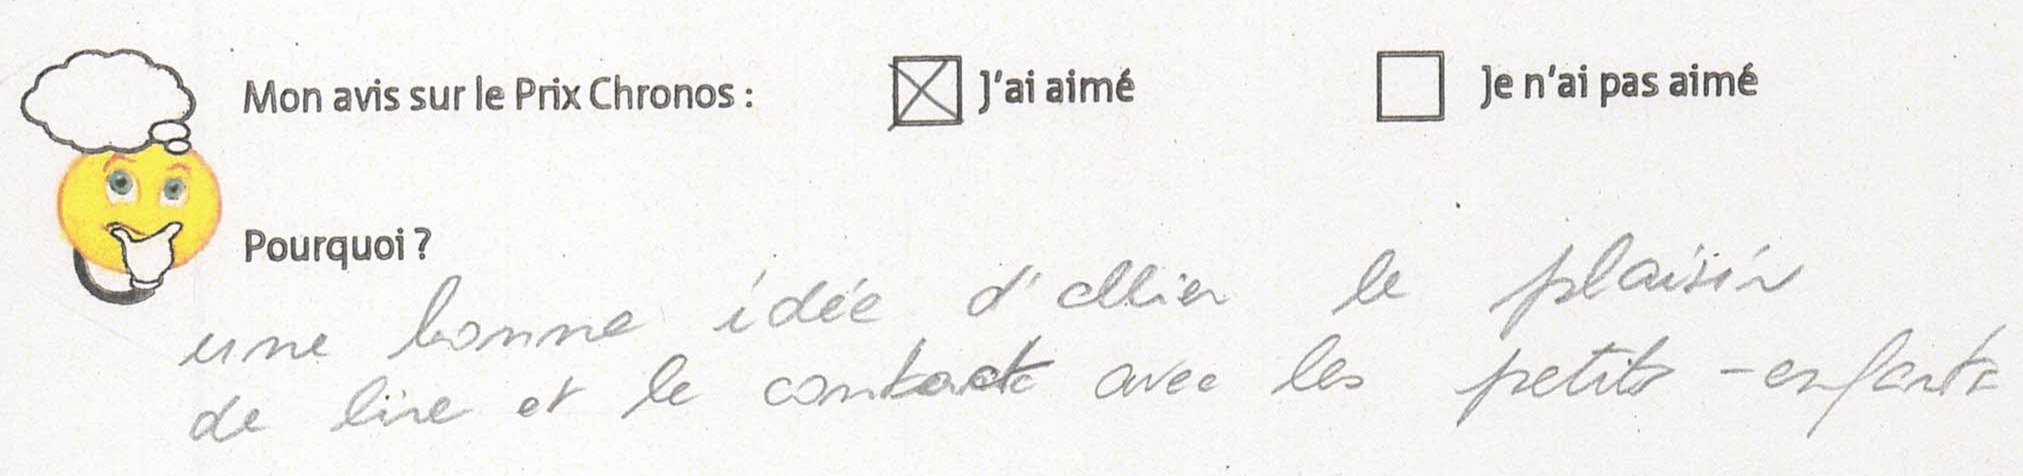 Mon avis sur le Prix Chronos : ☒ J'ai aimé ☐ Je n'ai pas aimé
Pourquoi ?
une bonne idée d'allier le plaisir
de lire et le contact avec les petits-enfants